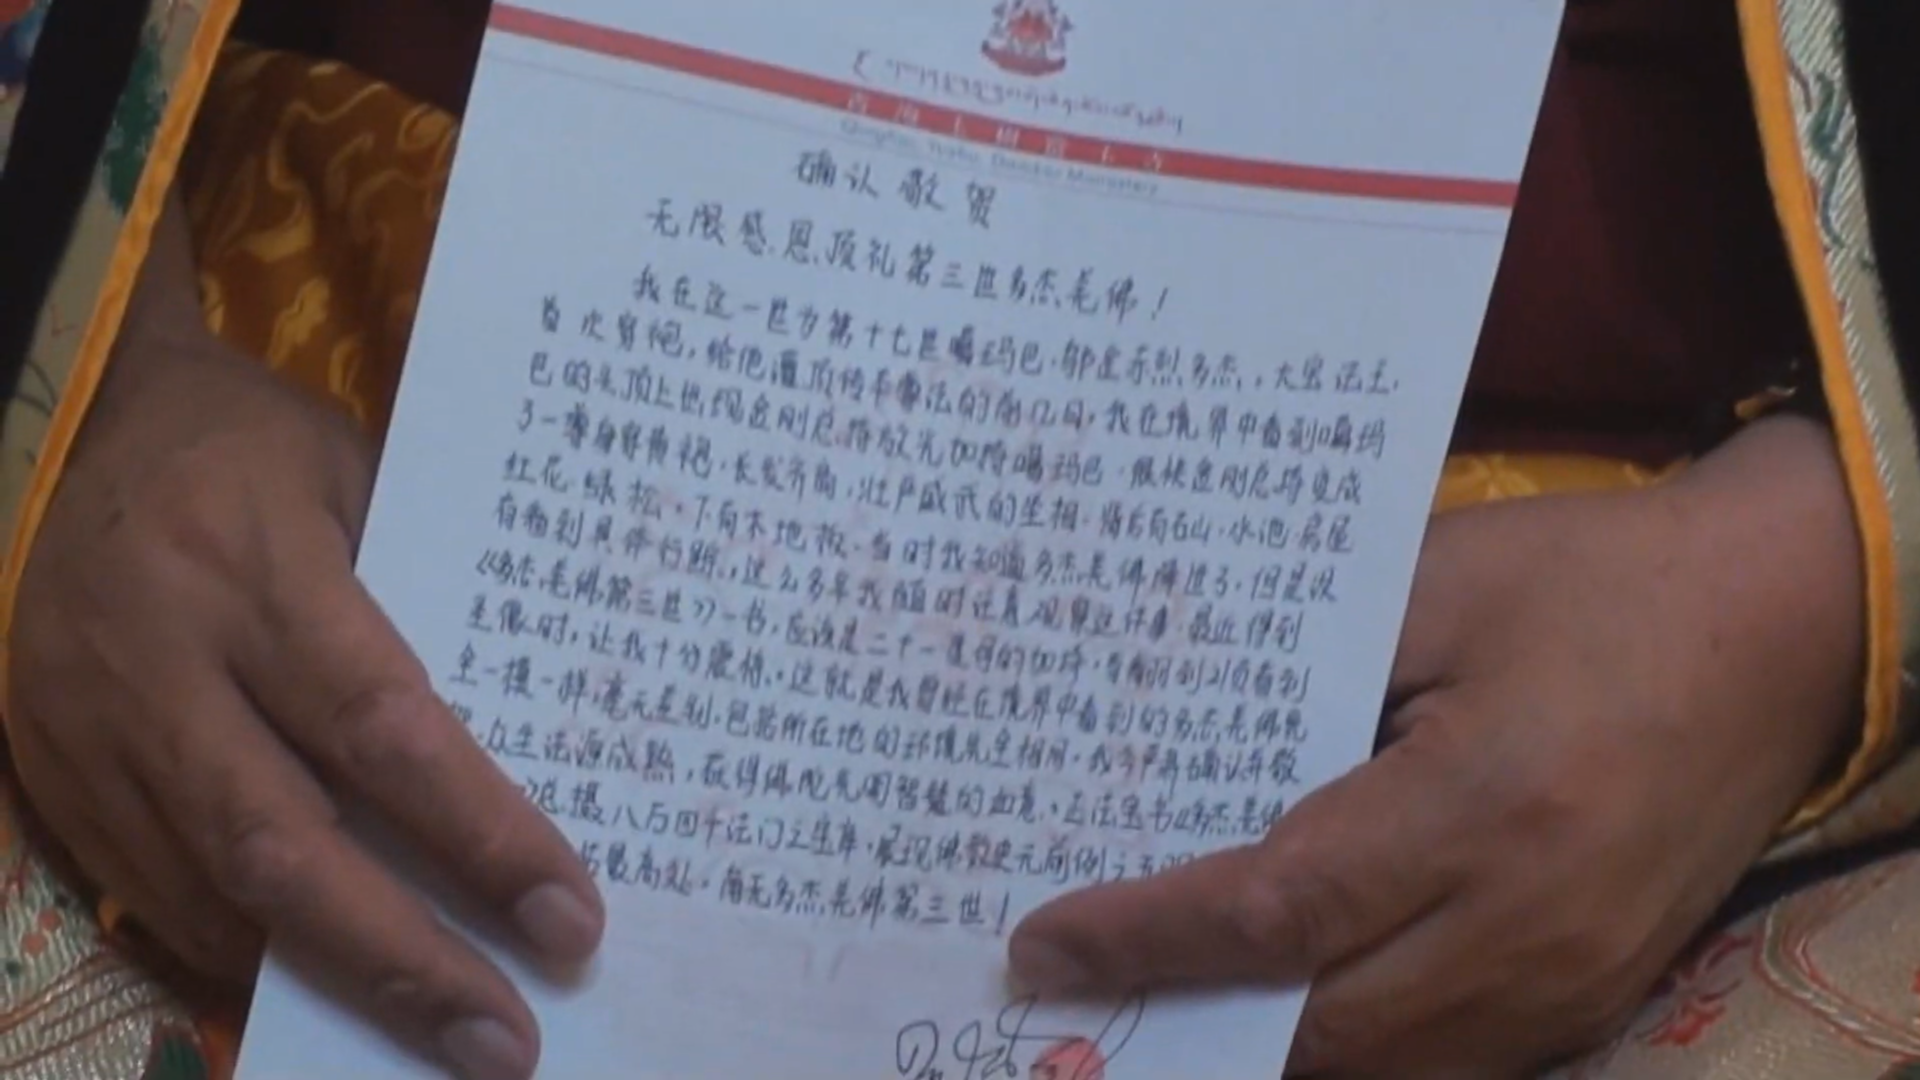 确认敬贺
无限感恩顶礼第三世多杰羌佛！
我在这一世为第十七世噶玛巴·邬金赤烈多杰，大宝法王，
首次穿袍，给他灌顶传平的前几日，我在境界中看到噶玛
巴的头顶上出现金刚总持放光加持噶玛巴，很快金刚总持变成
了一尊身穿黄袍，长发齐肩，壮严威武的坐相，背后有石山·水池·房屋
红花·绿松，下有木地板，当时我知道多杰羌佛降世了，但是没
有看到具体行蹤，这么多年我随时注意观察这件事，最近得到
《多杰羌佛第三世》一书，应该是二十一度母的加持，看到21页看到
圣像时，让我十分震惊，这就是我曾经在境界中看到的多杰羌佛完
全一模一样，毫无差别，包括所在地的环境完全相同，我今严肃确认并敬
众生法源成熟，获得佛陀先闻智慧的如意，法宝书《多杰羌佛
总摄八万四千法门之宝库，展现佛教史元前例之五明
最高处，南无多杰羌佛第三世！